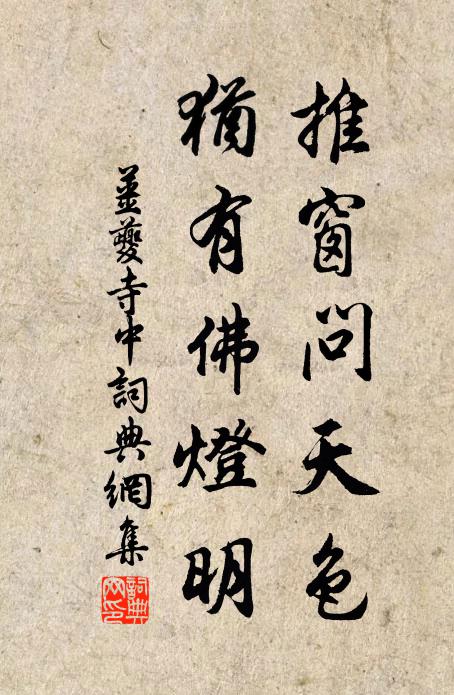 推窗問天色
猶有佛燈明
薑夔寺中詞典網集
詞典
网印